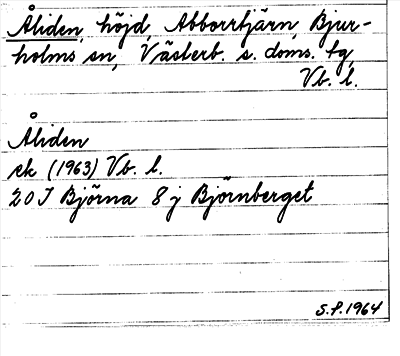 Åliden, höjd, Abborrtjärn, Bjur-
holms sn, Västerb. s. doms. tg,
Vb. l.
Åliden
ek (1963) Vb. l.
20 I Björna 8 j Björnberget
S.P. 1964